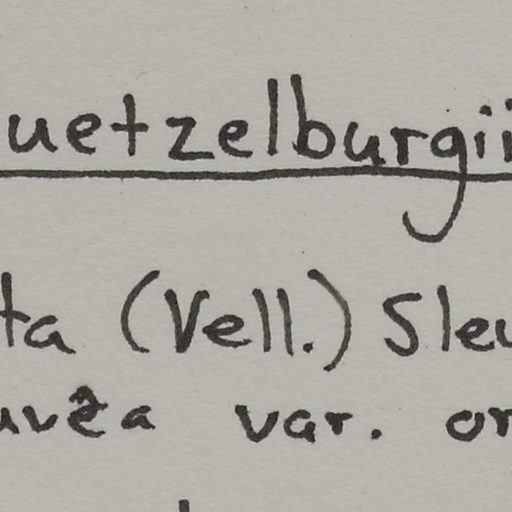 uetzelburgii
ta (Vell.) Sleu
uvêa var. or